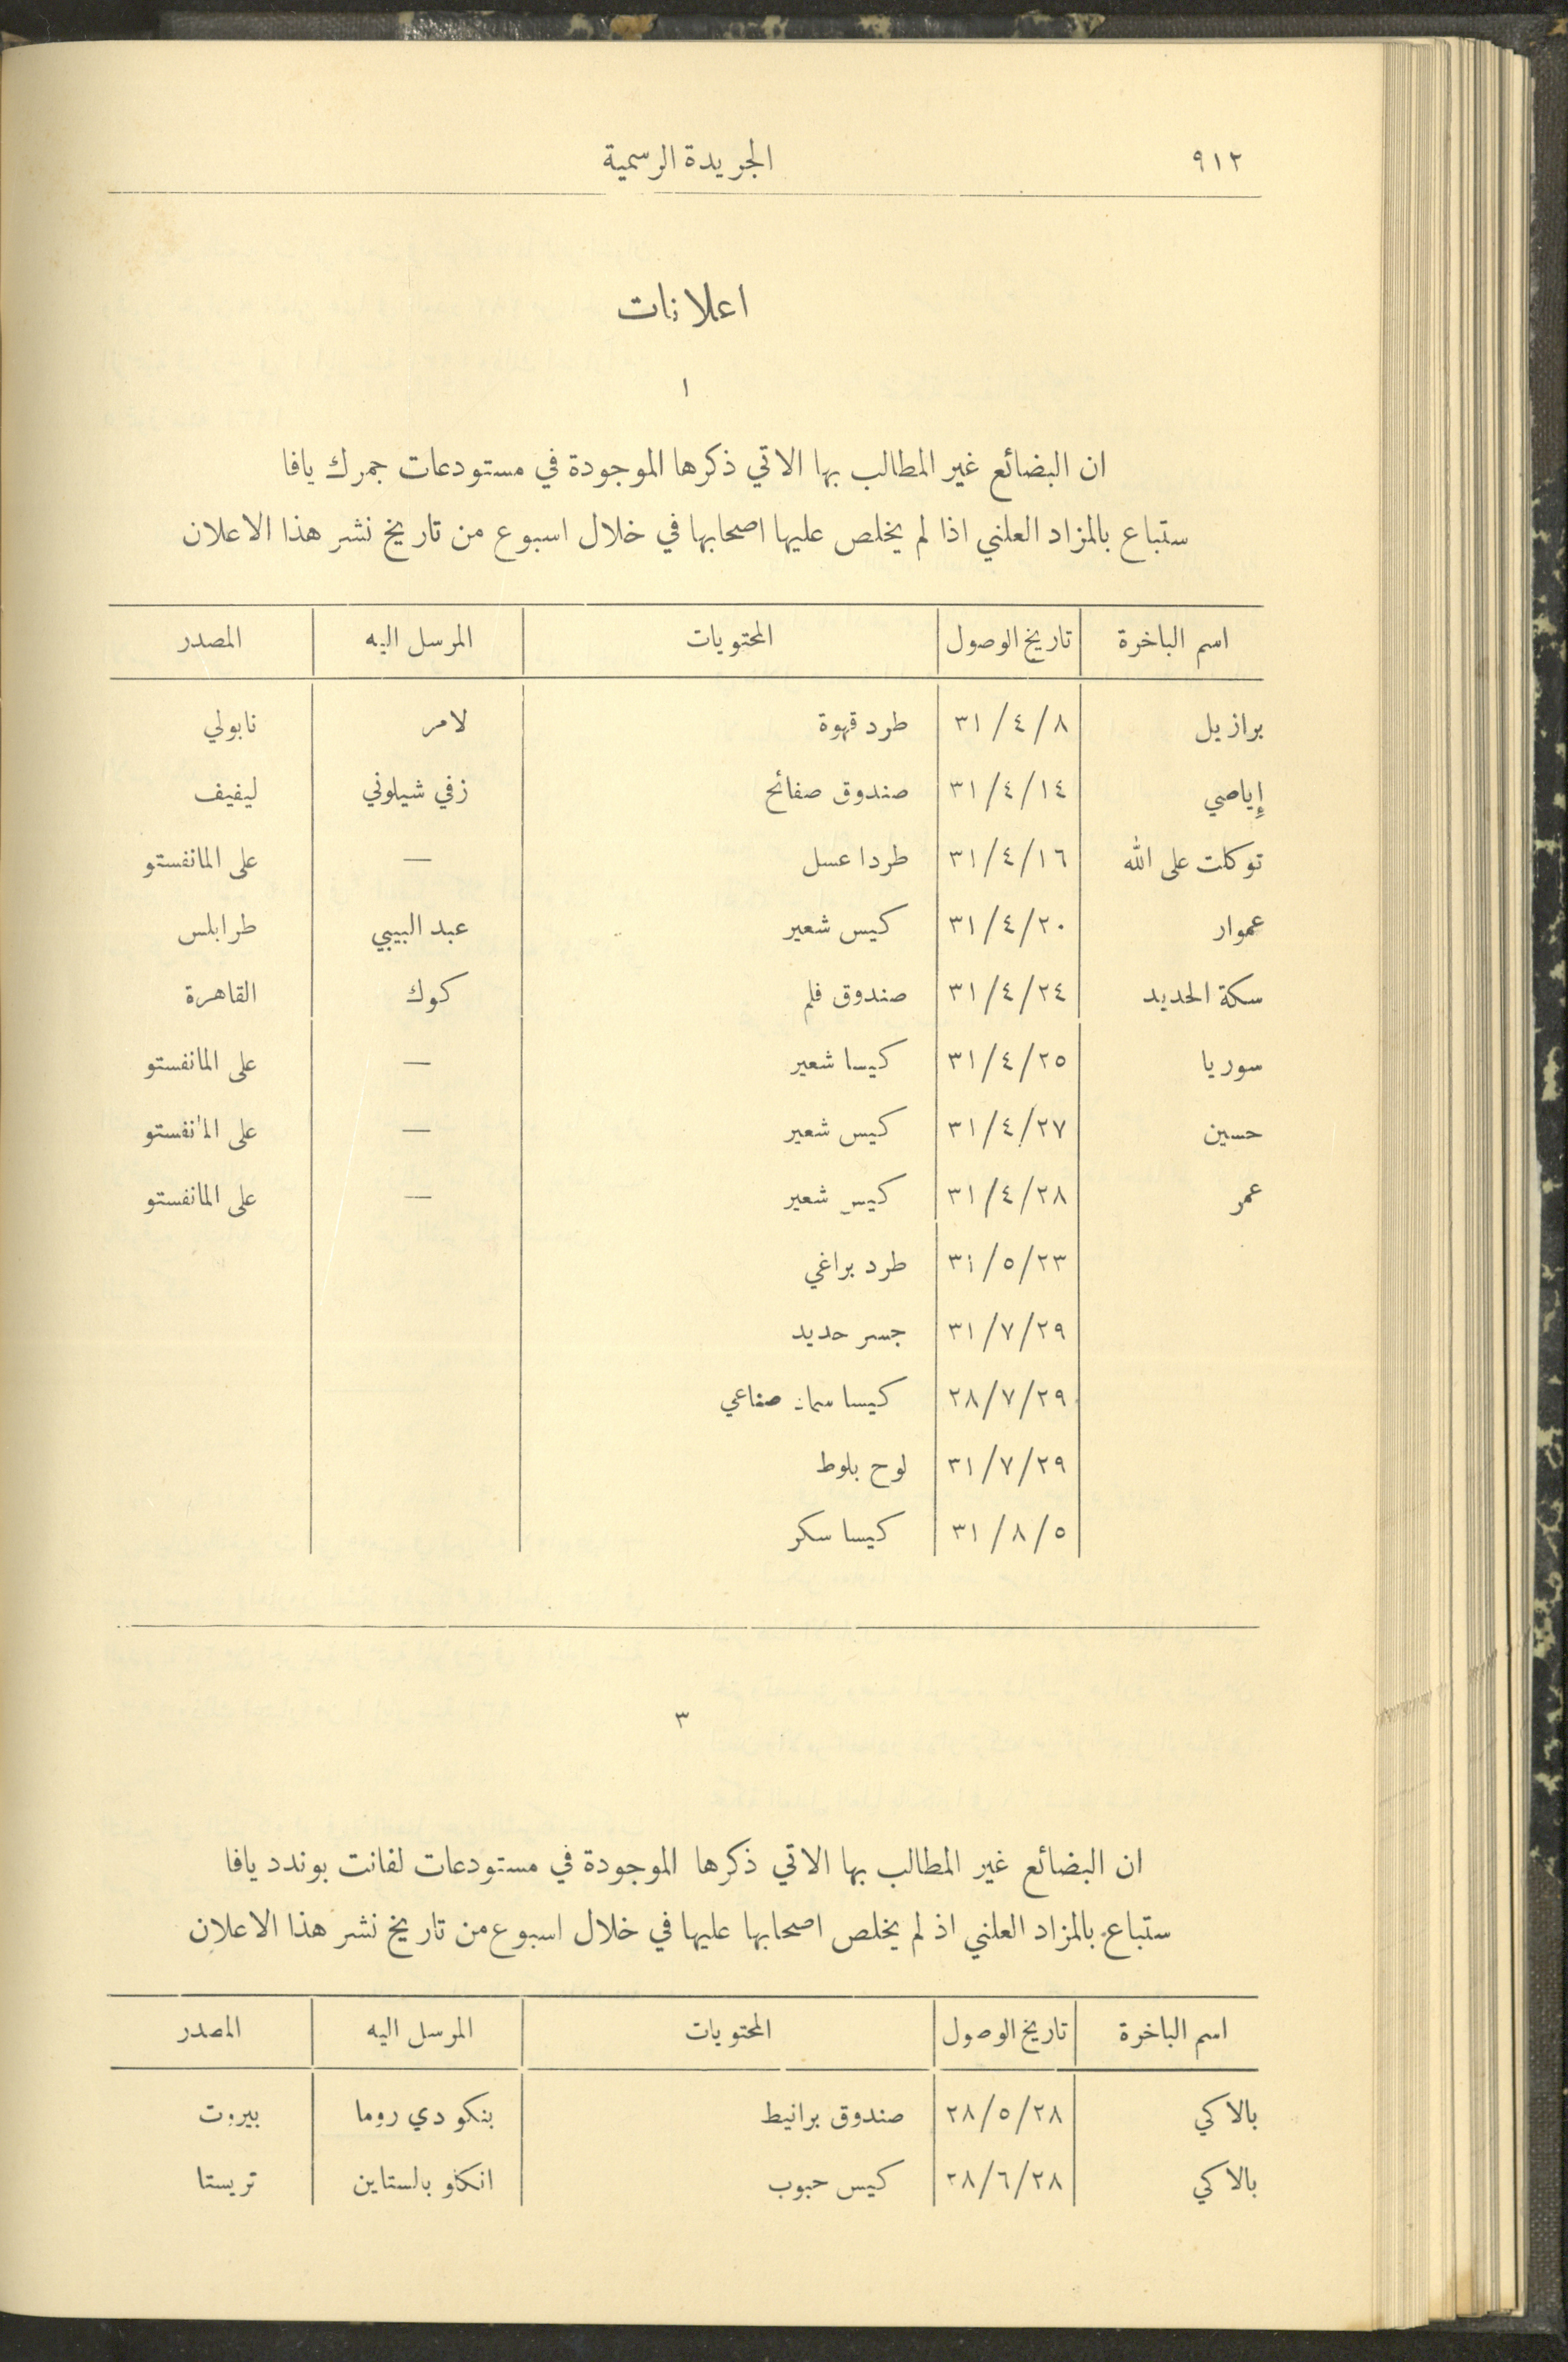 ٩١٢ الجريدة الرسمية
اعلانات
١
ان البضائع غير المطالب بها الاتي ذكرها الموجودة في مستودعات جمرك يافا
ستباع بالمزاد العلني اذا لم يخلص عليها اصحابها في خلال اسبوع من تاريخ نشر هذا الاعلان
اسم الباخرة تاريخ الوصول المحتويات المرسل اليه المصدر
برازيل ٣١/٤/٨ طرد قهوة لامر نابولي
إياصي ٣١/٤/١٤ صندوق صفائح زفي شيلوني ليفيف
توكلت على الله ٣١/٤/١٦ طردا عسل — على المانفستو
عموار ٣١/٤/٢٠ كيس شعير عبد البيبي طرابلس
سكة الحديد ٣١/٤/٢٤ صندوق فلم كوك القاهرة
سوريا ٣١/٤/٢٥ كيسا شعير — على المانفستو
حسين ٣١/٤/٢٧ كيس شعير — على المانفستو
عمر ٣١/٤/٢٨ كيس شعير — على المانفستو
٣١/٥/٢٣ طرد براغي
٣١/٧/٢٩ جسر حديد
٢٨/٧/٢٩ كيسا صناعي
٣١/٧/٢٩ لوح بلوط
٣١/٨/٥ كيسا سكر
٣
ان البضائع غير المطالب بها الاتي ذكرها الموجودة في مستودعات لفانت بوندد يافا
ستباع بالمزاد العلني اذ لم يخلص اصحابها عليها في خلال اسبوع من تاريخ نشر هذا الاعلان
اسم الباخرة تاريخ الوصول المحتويات المرسل اليه المصدر
بالاكي ٢٨/٥/٢٨ صندوق برانيط بنكو دي روما بيروت
بالاكي ٢٨/٦/٢٨ كيس حبوب انكلو بالستاين تريستا